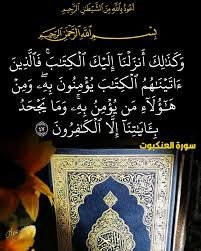 أعوذ بالله من الشيطان الرجيم
بِسْمِ ٱللَّهِ ٱلرَّحْمَٰنِ ٱلرَّحِيمِ
وَكَذَٰلِكَ أَنزَلْنَآ إِلَيْكَ ٱلْكِتَٰبَ ۚ فَٱلَّذِينَ
ءَاتَيْنَٰهُمُ ٱلْكِتَٰبَ يُؤْمِنُونَ بِهِۦ ۖ وَمِنْ
هَٰٓؤُلَآءِ مَن يُؤْمِنُ بِهِۦ ۚ وَمَا يَجْحَدُ
بِـَٔايَٰتِنَآ إِلَّا ٱلْكَٰفِرُونَ ٤٧
سورة العنكبوت